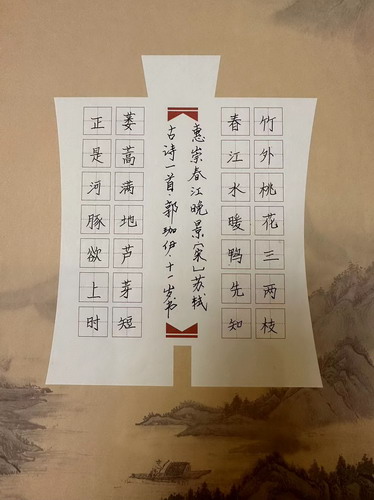 竹外桃花三两枝
春江水暖鸭先知
惠崇春江晚景〔宋〕苏轼
古诗一首·郭珈伊·十一岁书
蒌蒿满地芦芽短
正是河豚欲上时